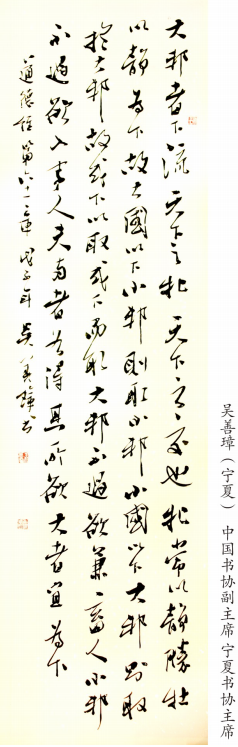 吴善璋（宁夏） 中国书协副主席 宁夏书协主席
大邦者下流天下之牝天下之交也牝常以静勝牡
以静為下故大國以下小邦則取小邦小國以下大邦則取
於大邦故或下以取或下而取大邦不過欲兼畜人小邦
不過欲入事人夫兩者各得其所欲大者宜為下
道德經第六十一章戊子年吴善璋書